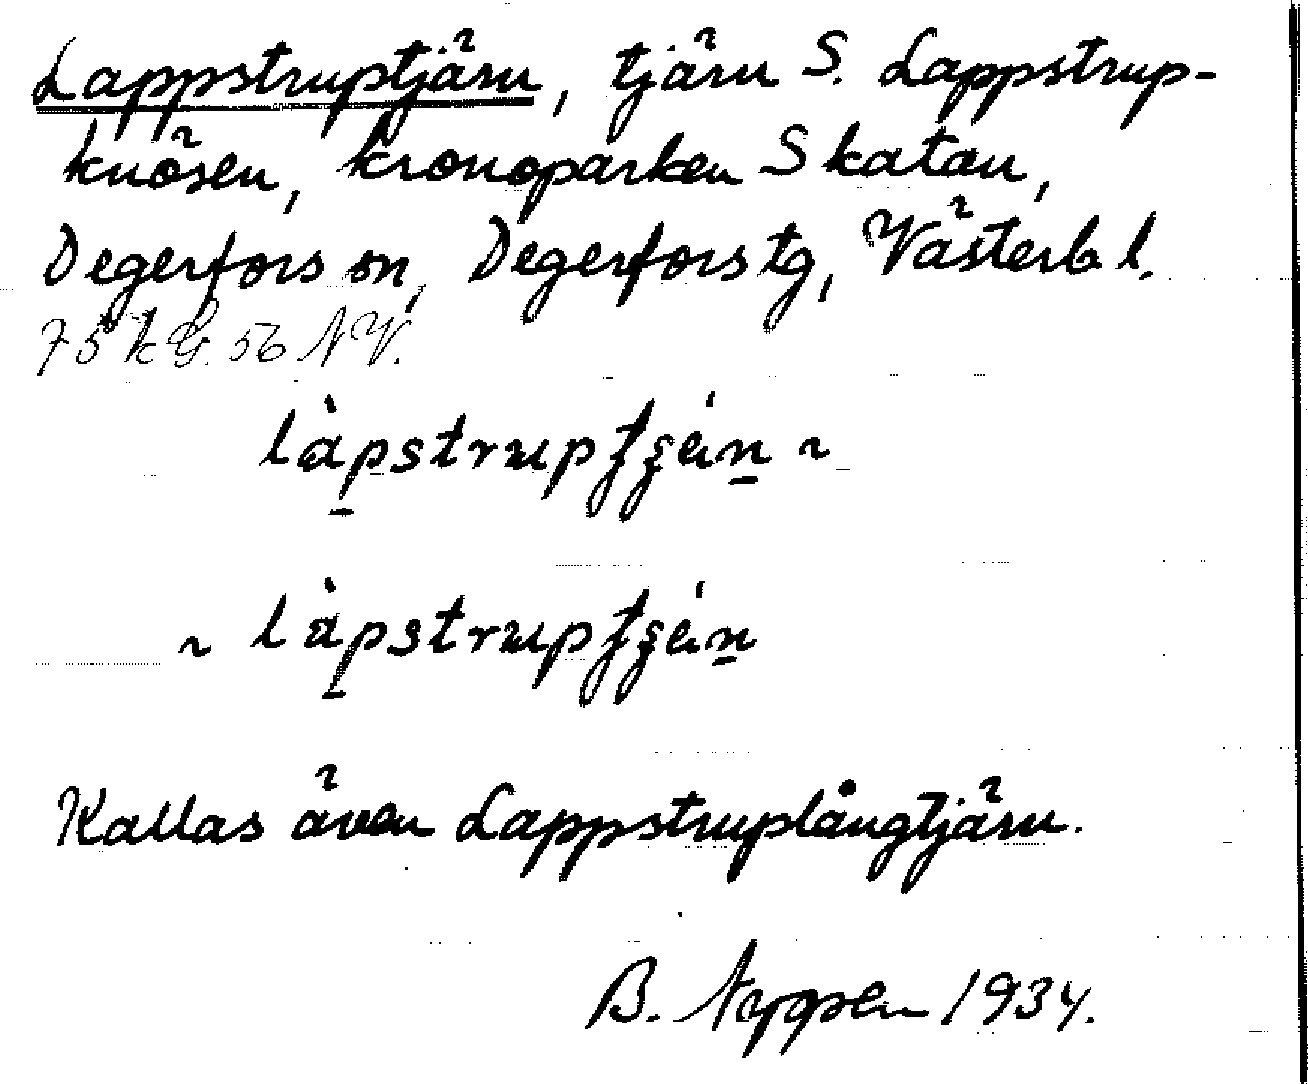 Lappstruptjärn, tjärn S. Lappstrup-
knösen, kronoparken Skatan,
Degerfors sn, Degerfors tg, Västerb. l.
75 k G. 56 NV.
Kallas även Lappstruplångtjärn.
B. 1934.